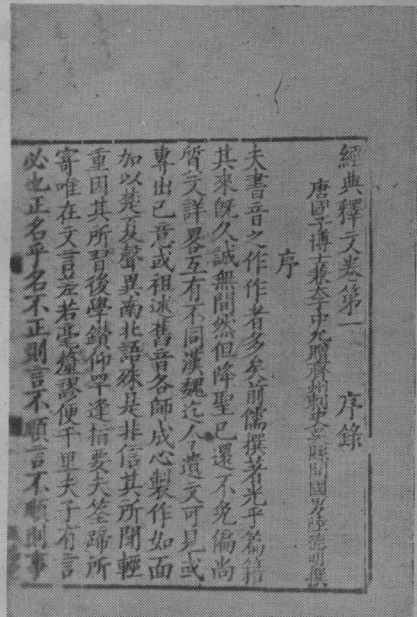 經典釋文卷第一 序錄
唐國子博士兼太子中允贈齊州刺史吳縣開國男陸德明撰
序
夫書音之作作者多矣前儒撰著光乎篇籍
其來既久誠無間然但降聖已還不免偏尚
質文詳畧互有不同漢魏迄今遺文可見或
專出已意或祖述舊音各師成心製作如面
加以楚夏聲異南北語殊是非信其所聞輕
重因其所習後學鑽仰罕逢指要夫筌蹄所
寄唯在文言差若毫氂謬便千里夫子有言
必也正名乎名不正則言不順言不順則事